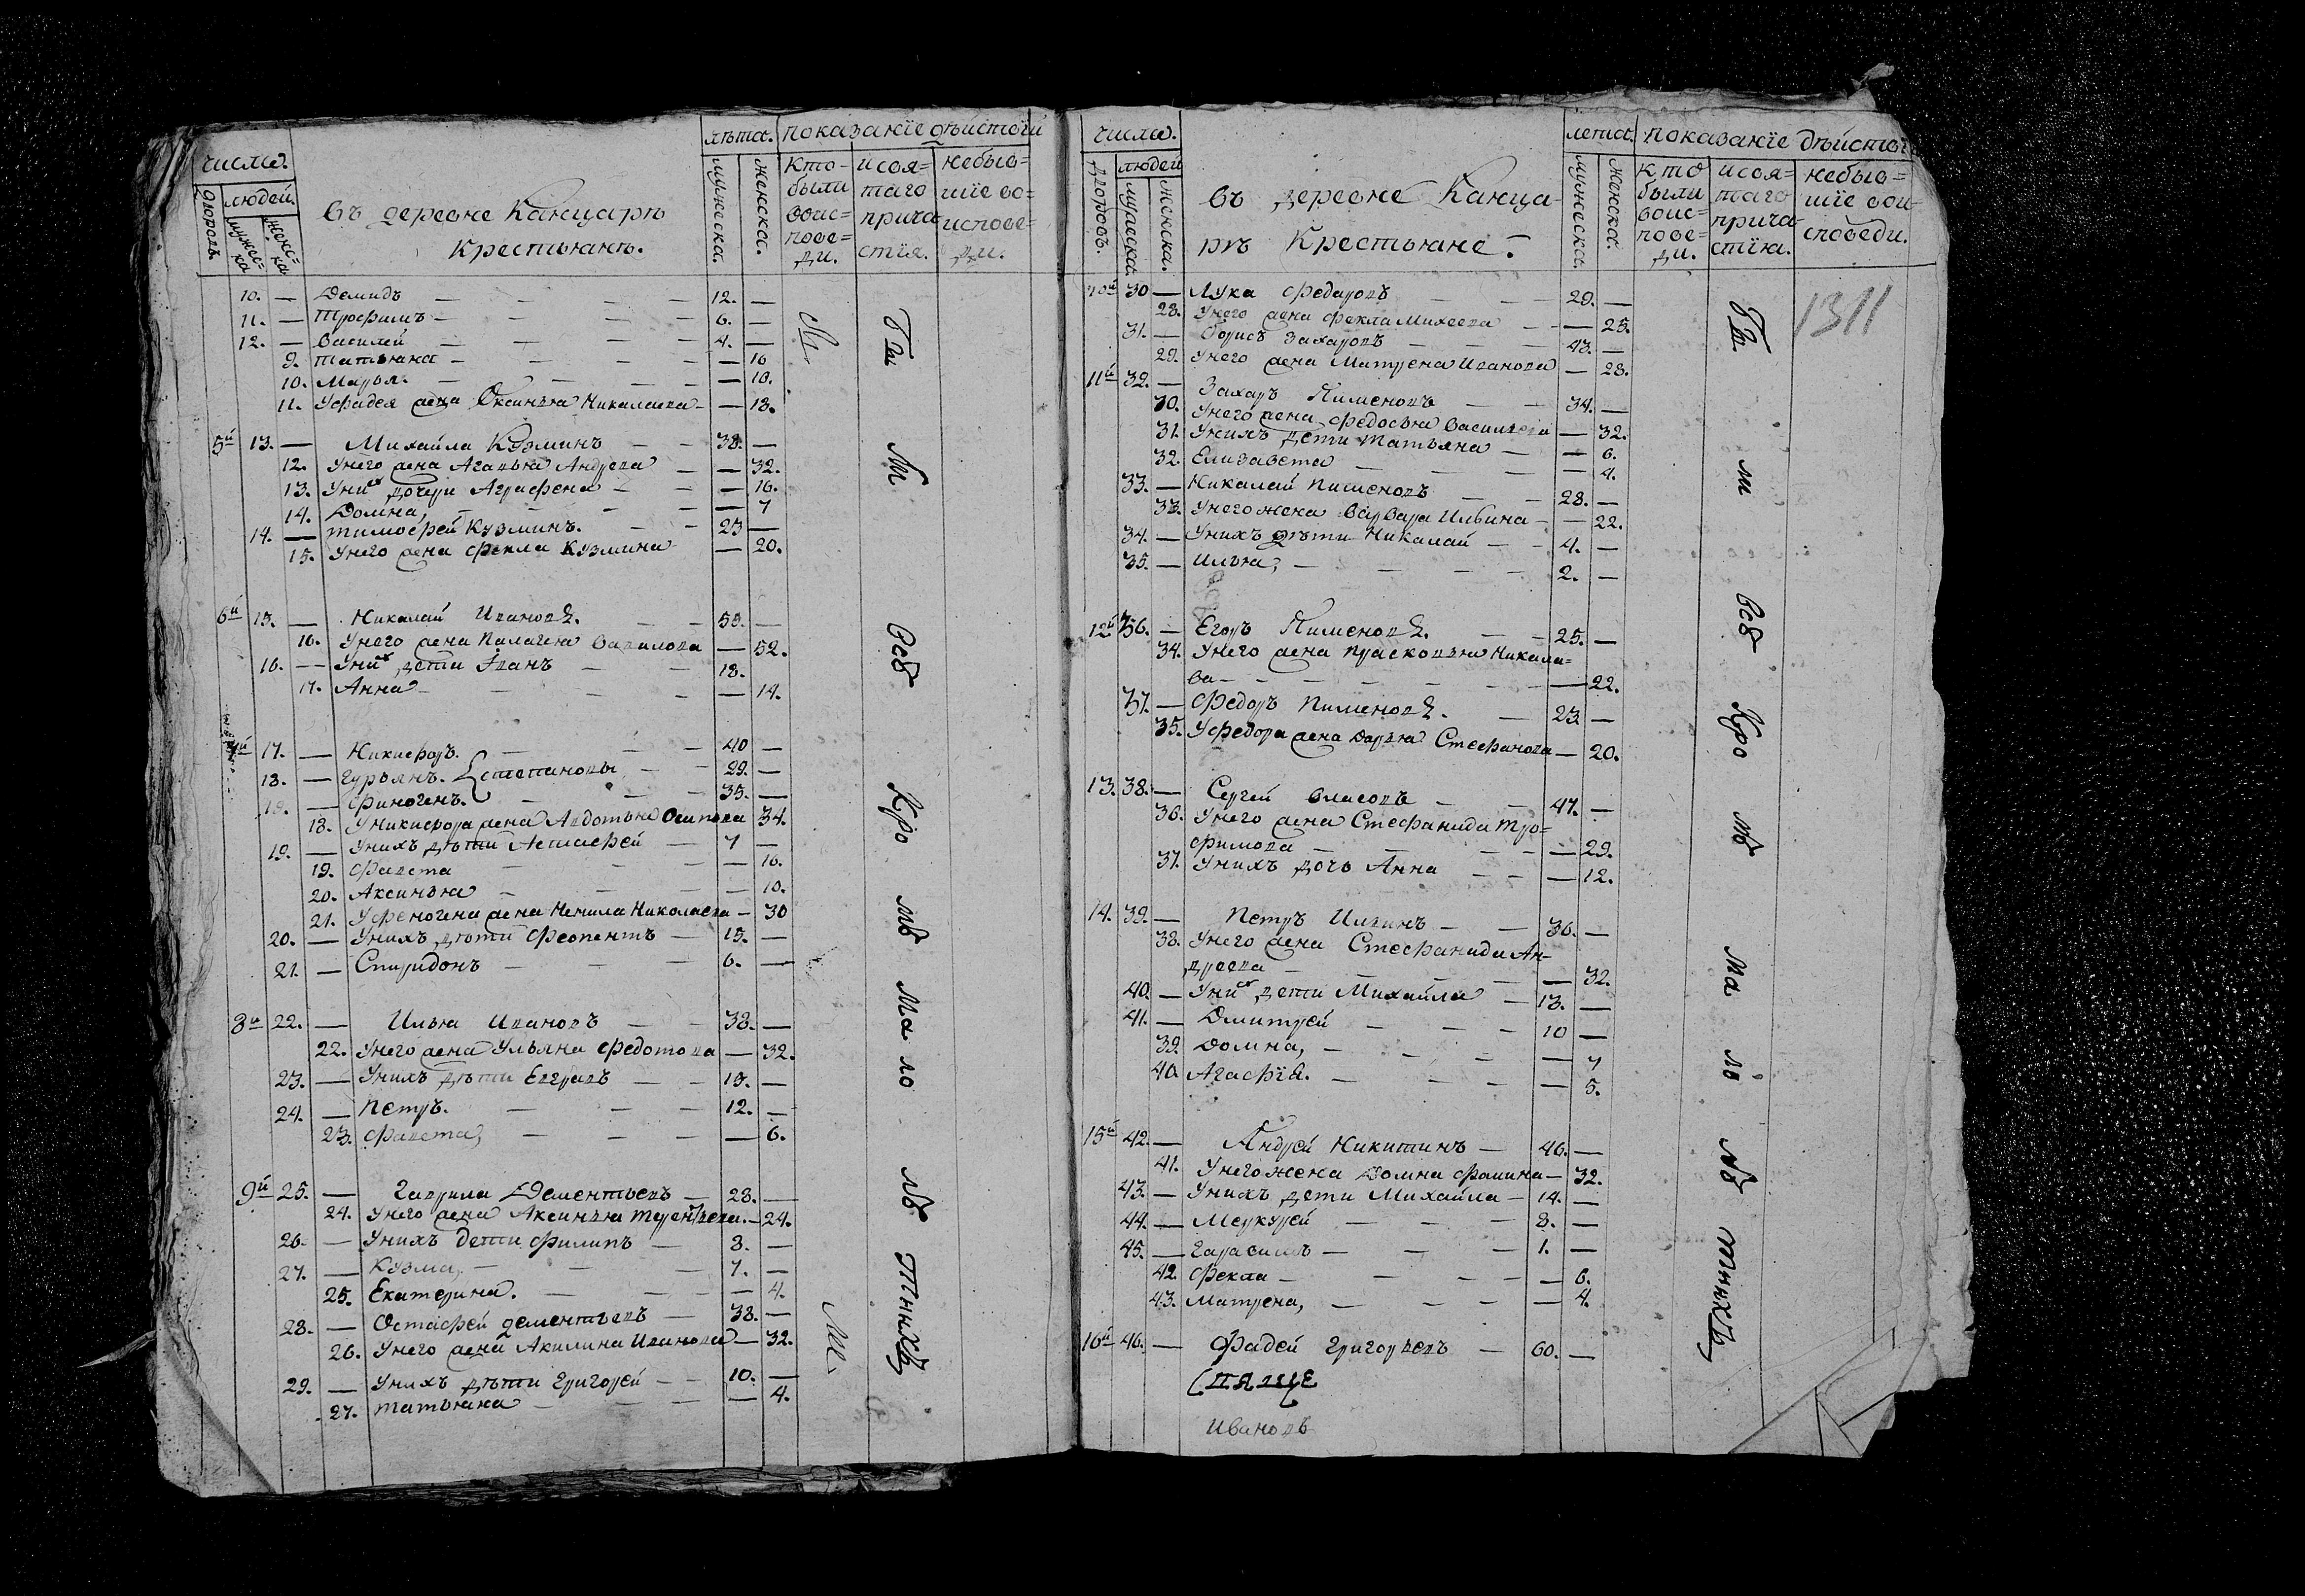 числа.
лѣта.
показанїе дѣйствїи
дворовъ.
людей.
мужес=
ка
женс=
ка.
въ деревне Канцаръ
Крестьянъ.
мужеска.
женска.
кто-
были
воис=
пове=
ди.
исвя=
таго
прича
стїя.
небыв=
шїе во=
испове=
ди.
10. — Демидъ — 12. —
11. — Трофимъ — 6. —
12. — Василей — 4. —
9. Татьяна — — 16
10. Марья. — — 10.
11. Уфадея жена Оксинья Николаева — — 18.
5й 13. — Михайла Кузминъ — 38. —
12. Унего жена Агафья Андреева — — 32.
13. Унихъ дочери Аграфена — — 16.
14. Домна, — — 7
14. — Тимофей Кузминъ. — 23 —
15. Унего жена Фекла Кузмина — 20.
6й 15. — Николай Ивановъ. — 55. —
16. Унего жена Пилагея Вавилова — 52.
16. — Унихъ дети Иванъ — 18. —
17. Анна — — 14.
7й 17. — Никифоръ. — 40 —
18. — Гурьянъ. { Степановы — 29. —
18. — Финогенъ. — 35. —
18. Уникифора жена Авдотья Осипова 34.
19. — Унихъ дѣти Астафей — 7 —
19. Фавста — — 16.
20. Аксинья — — 10.
21. Уфеногена жена Ненила Николаева — 30
20. — Унихъ дѣти Феопентъ — 15. —
21. — Спиридонъ — 6. —
8й 22. — Илья Ивановъ — 38. —
22. Унего жена Ульяна Федотова — 32.
23. — Унихъ дѣти Евграфъ — 15. —
24. — Петръ. — 12. —
23. Фавста, — — 6.
9й 25. — Гаврила Дементьевъ — 28. —
24. Унего жена Аксинья Терентьева. — 24.
26. — Унихъ дети Филипъ — 8. —
27. — Кузма, — 7. —
25. Екатерина. — — 4.
28. — Остафей дементьевъ — 38. —
26. Унего жена Акилина Иванова — 32.
29. — Унихъ дѣти Григорей — 10. —
27. Татьяна — — 4.
Всѣ
Кро
мѣ
Ма
ло
лѣ
тнихъ
числа.
летa.
показанїе дѣйстві
дворовъ.
людей
мужеска.
женска.
въ деревне Канца-
ръ Крестьяне.
мужеска.
женска.
кто
были
воис=
пове=
ди.
исвя=
таго
прича
стїя.
небыв=
шїе вои
споведи.
1311
10й 30 — Лука Федоровъ — 29. —
28. Унего жена Фекла Михеева — — 25.
31. — Борисъ Захаровъ — 43. —
29. Унего жена Матрена Иванова — 28.
11й 32. — Захаръ Пименовъ — 34. —
30. Унего жена Федосья Васильева — 32.
31. Унихъ дети Татьяна — — 6.
32. Елизавета — — 4.
33. — Николай Пименовъ — 28. —
33. Унего жена Варвара Ильина — — 22.
34. — Унихъ дѣти Николай — 4. —
35. — Илья, — 2. —
12й 36. — Егоръ Пименовъ. — 25. —
34. Унего жена Прасковья Никола=
ва — — 22.
37. — Федоръ Пименовъ. — 23. —
35. Уфедора жена Дарья Стефанова — 20.
13. 38. — Сергей Власовъ — 47. —
36. Унего жена Стефанида Тро=
фимова — — 29.
37. Унихъ дочь Анна — — 12.
14. 39. — Петръ Ильинъ — 36. —
38. Унего жена Стефанида Ан-
дреева — — 32.
40. — Унихъ дети Михайла — 13. —
41. — Дмитрей — 10 —
39. Домна, — — 7
40. Агафїя. — — 5.
15й 42. — Андрей Никитинъ — 46. —
41. Унего жена Домна Фомина — 32.
43. — Унихъ дети Михайла — 14. —
44. — Меркурей — 8. —
45. — Гарасимъ — 1. —
42. Фекла — — 6.
43. Матрена, — — 4.
16й 46. — Фадей Григорьевъ — 60. —
Ивановъ
Всѣ
Кро
мѣ
Ма
ло
лѣ
тнихъ